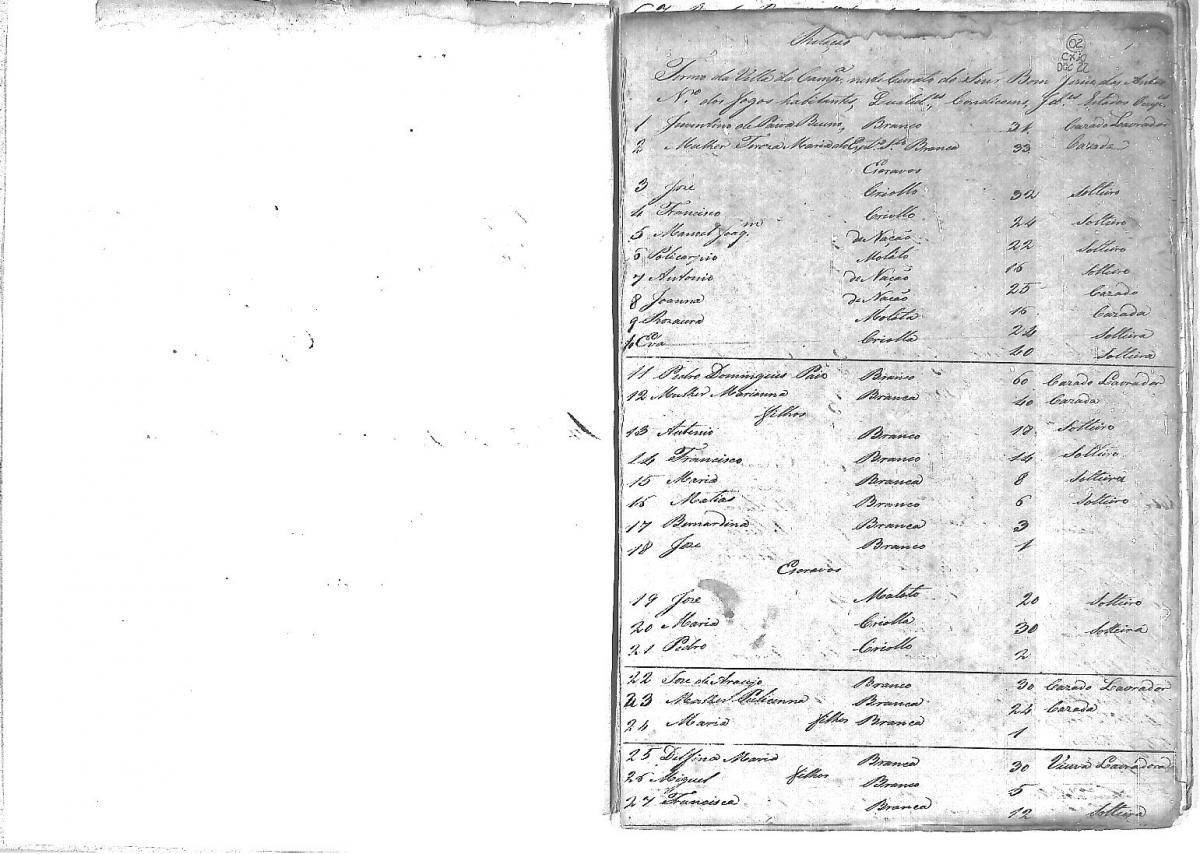 Relação
02
CX 30
DOC 22
Termo da Villa da Campª, neste Curato do Snr Bom Jesus dos
N.º dos Fogos habitantes, Condicoens, Estados
1 Juventino de Paiva Bueno, Branco 31 Cazado Lavrador
2 Mulher Tereza Maria do Branca 33 Cazada
Escravos
3 José Criollo 32 Solteiro
4 Francisco Criollo 24 Solteiro
5 Manoel Joaqm de Nação 22 Solteiro
6 Policarpio Molato 16 Solteiro
7 Antonio de Nação 25 Cazado
8 Joanna de Nação 16 Cazada
9 Rozaura Molata 24 Solteira
10 Eva Criolla 40 Solteira
11 Pedro Domingues Pais Branco 60 Cazado Lavrador
12 Mulher Marianna Branca 40 Cazada
filhos
13 Antonio Branco 18 Solteiro
14 Francisco Branco 14 Solteiro
15 Maria Branca 8 Solteira
16 Matias Branco 6 Solteiro
17 Bernardina Branca 3
18 José Branco 1
Escravos
19 José Molato 20 Solteiro
20 Maria Criolla 30 Solteira
21 Pedro Criollo 2
22 José de Araujo Branco 30 Cazado Lavrador
23 Mulher Branca 24 Cazada
24 Maria filhos Branca 1
25 Delfina Maria Branca 30 Viuva Lavradora
26 Miguel filhos Branco 5
27 Francisca Branca 12 Solteira